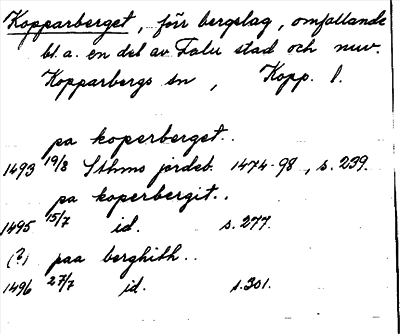 Kopparberget, förr bergslag, omfattande
bl.a. en del av Falu stad och nuv.
Kopparbergs sn, Kopp. l.
pa koperberget..
1493 19/8 Sthms jordeb. 1474-98, s. 239.
pa koperbergit..
1495 15/7 id. s. 277.
(?) paa berghith..
1496 27/7 id. s. 301.